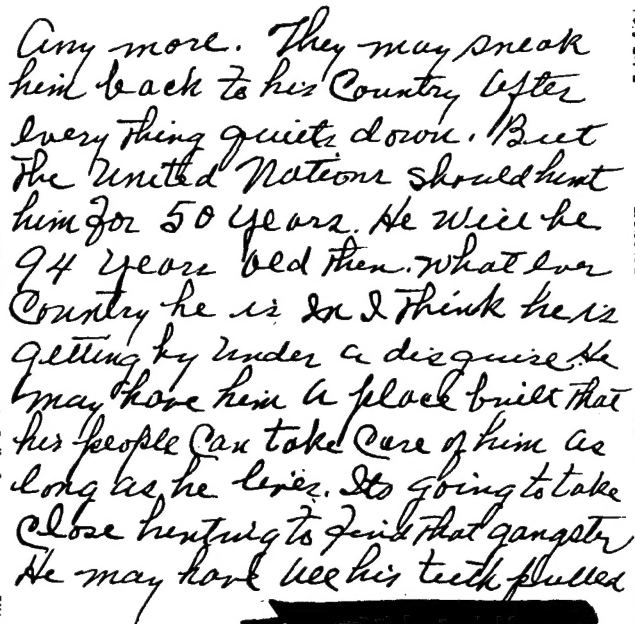 Any more. They may sneak
him back to his Country after
every thing quiets down. But
the United Nations should hunt
him for 50 years. He will be
94 years old then. What ever
Country he is in I think he is
getting by under a disguise. He
may have him a place built that
his people can take care of him as
long as he lives. Its going to take
close hunting to find that gangster
He may have all his teeth pulled